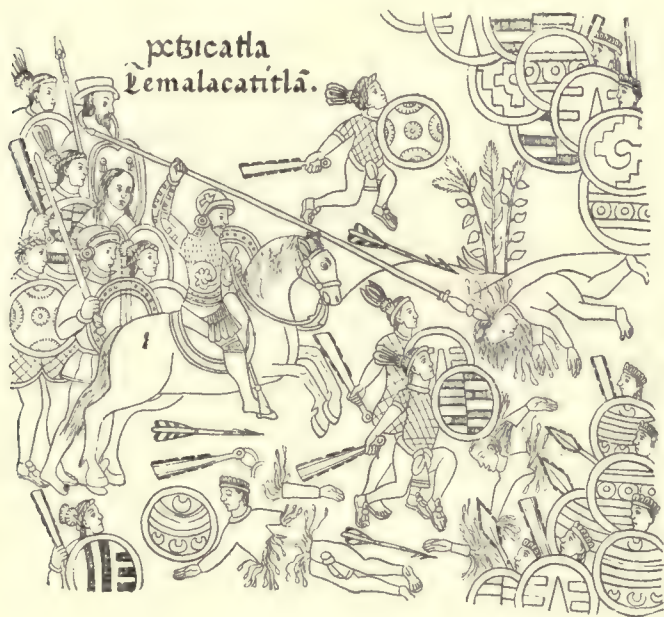 petzicatla
Temalacatitlã.